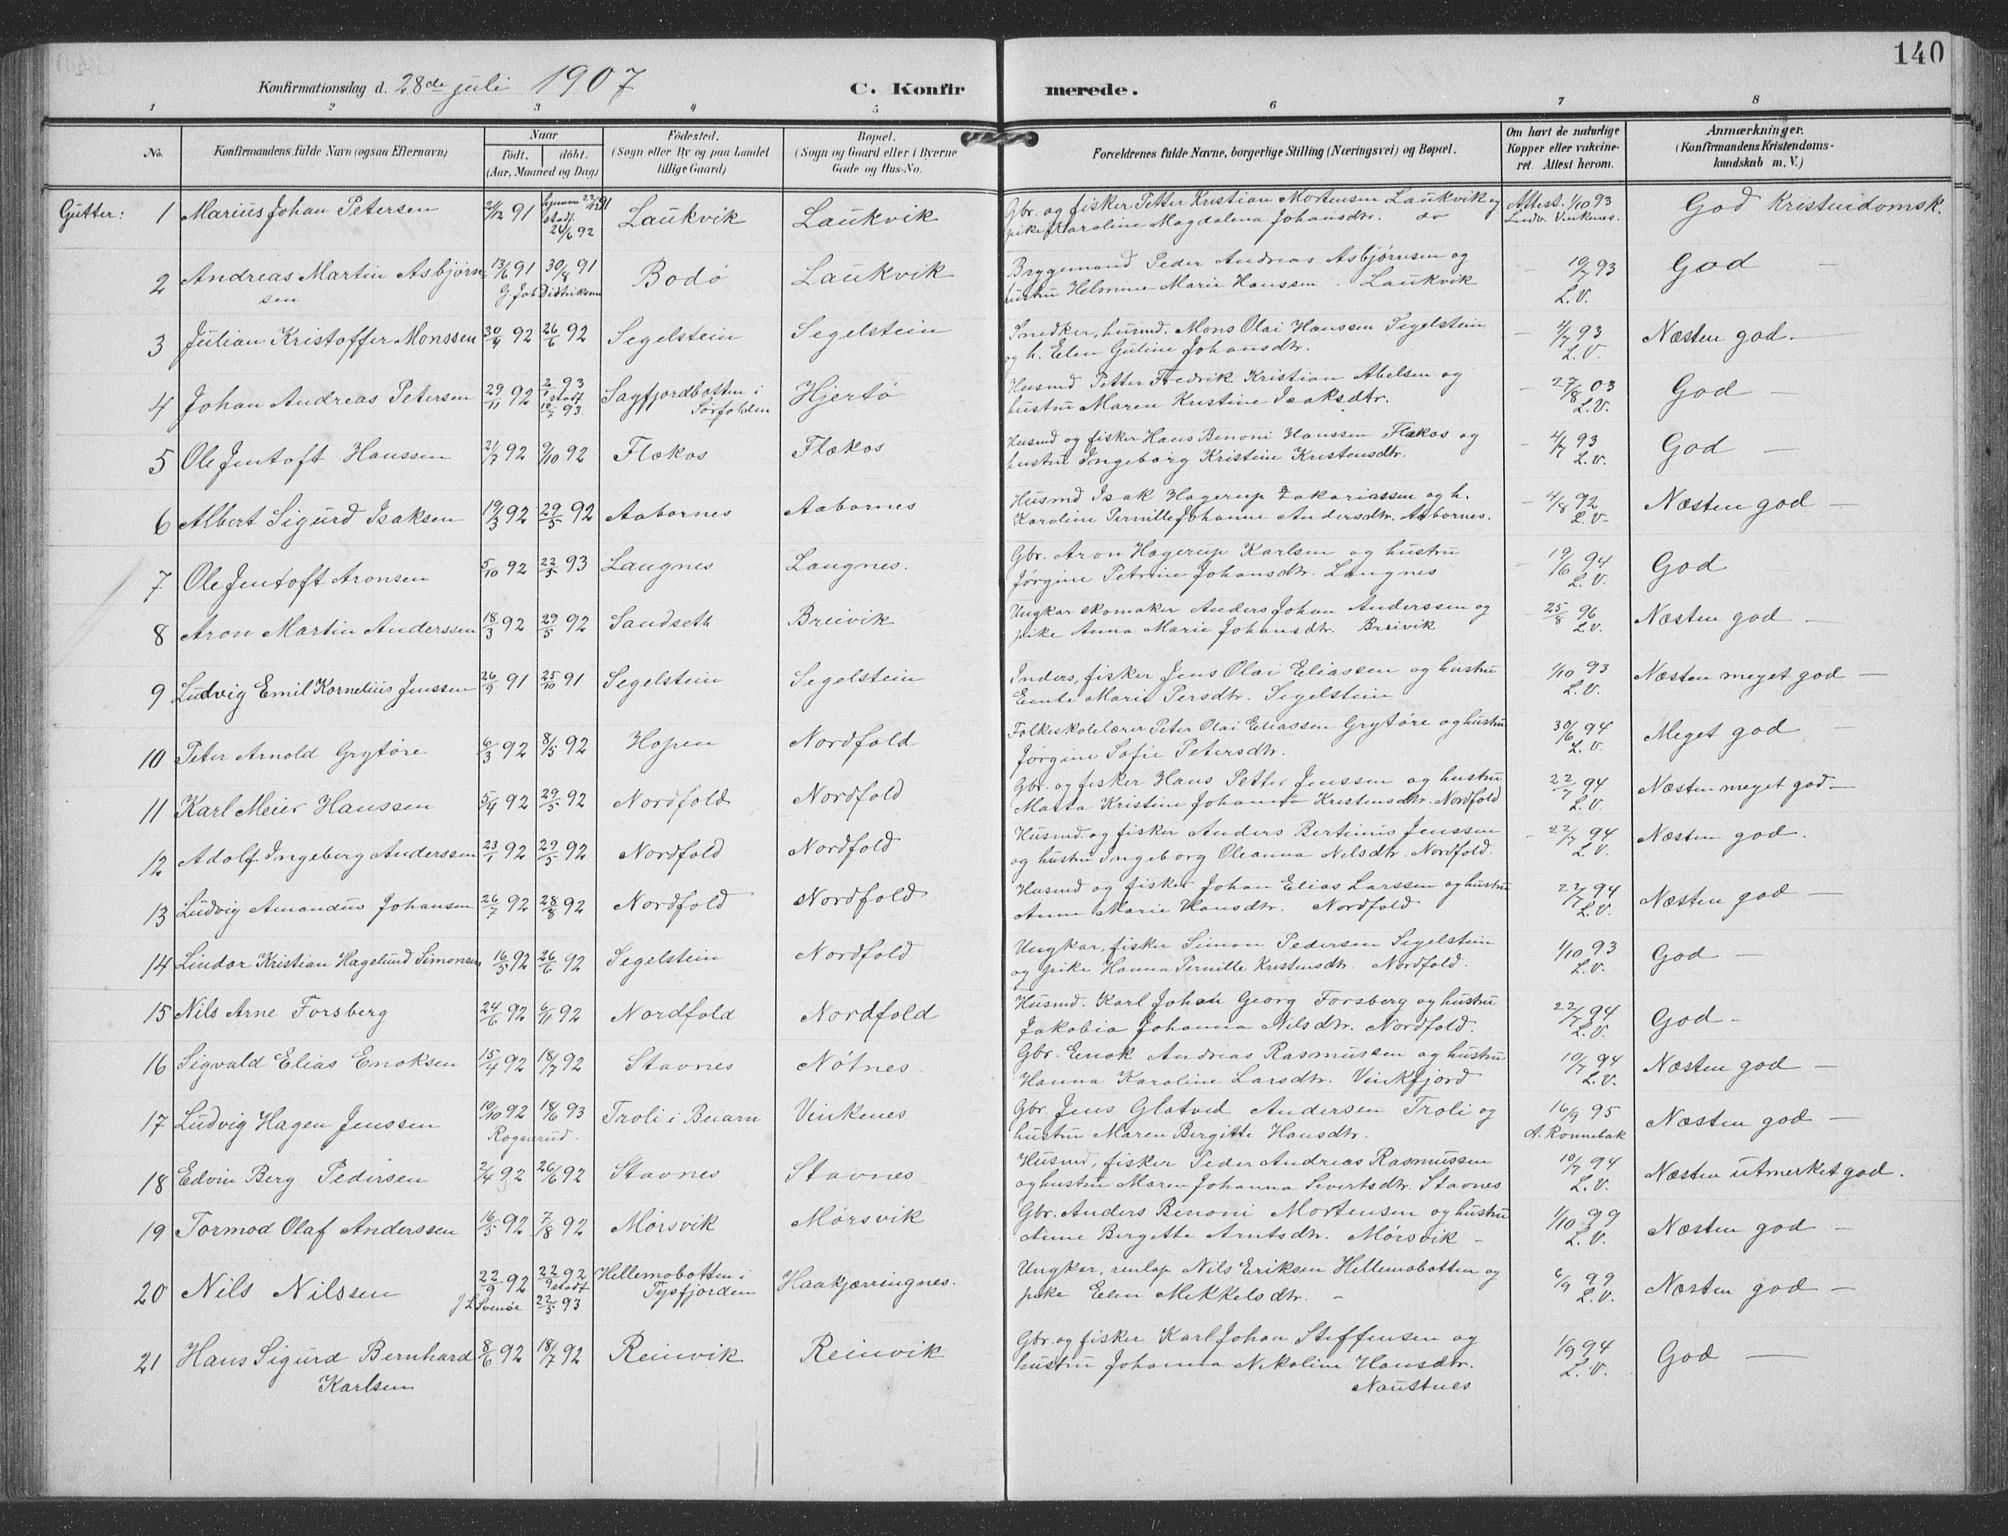 140
Konfirmationsdag d. 28de juli 1907
C. Konfirmerede.
1 2 3 4 5 6 7 8
No.
Konfirmandens fulde Navn (ogsaa Efternavn)
Naar
födt. döbt.
(Aar, Maaned og Dag)
Födested.
(Sogn eller By og paa Landet
tillige Gaard)
Bopæl.
(Sogn og Gaard eller i Byerne
Gade og Hus-No.
Forældrenes fulde Navne, borgerlige Stilling (Næringsvei) og Bopæl.
Om havt de naturlige
Kopper eller vakcine-
ret. Attest herom.
Anmærkninger.
(Konfirmandens Kristendoms-
kundskab m. V.)
Gutter: 1 Marius Johan Petersen 24/12 91 24/6 92 Laukvik Laukvik Gbr. og fisker Petter Kristian Mortensen Laukvik og Attest. 1/10 93 God Kristendomsk.
pike Karoline Magdalena Johansdtr. do Ludv. Vinkenes.
2 Andreas Martin Asbjørn- 13/6 91 30/8 91 Bodø Laukvik Bryggemand Peder Andreas Asbjørnsen og – 19/7 93 God –
sen hustru Helmine Marie Hanssen. Laukvik L.V.
3 Julian Kristoffer Monssen 30/4 92 26/6 92 Segelstein Segelstein Snedker, husmd. Mons Olai Hanssen Segelstein – 4/7 93 Næsten god. –
og h. Elen Guline Johansdtr. L.V.
4 Johan Andreas Petersen 29/11 92 2/1 93 stadf. 10/7 93. Sagfjordbotten i Hjertø Husmd Petter Fredrik Kristian Abelsen og – 27/8 03 God –
Sørfolden hustru Maren Kristine Isaksdtr. L.V.
5 Ole Jentoft Hanssen 21/7 92 9/10 92 Flækos Flækos Husmd og fisker Hans Benoni Hanssen Flækos og – 4/7 93 God –
hustru Ingeborg Kristine Kristensdtr. L.V.
6 Albert Sigurd Isaksen 19/3 92 29/5 92 Aabornes Aabornes Husmd Isak Hagerup Zakariassen og h. – 4/8 92 Næsten god –
Karoline Pernille Johanne Andersdtr. Aabornes. L.V.
7 Ole Jentoft Aronsen 5/10 92 22/5 93 Langnes Langnes. Gbr. Aron Hagerup Karlsen og hustru – 19/6 94 God
Jørgine Petrine Johansdtr. Langnes L.V.
8 Aron Martin Anderssen 18/3 92 29/5 92 Sandseth Breivik Ungkar skomaker Anders Johan Anderssen og – 25/8 96 Næsten god –
pike Anna Marie Johansdtr. Breivik L.V.
9 Ludvig Emil Kornelius Jenssen 26/9 91 25/10 91 Segelstein Segelstein Inders, fisker Jens Olai Eliassen og hustru 1/10 93 Næsten meget god –
Marie Persdtr. Segelstein L.V.
10 Peter Arnold Grytøre 6/3 92 8/5 92 Hopen Nordfold Folkeskolelærer Peter Olai Eliassen Grytøre og hustru 30/6 94 Meget god –
Jørgine Sofie Petersdtr. L.V.
11 Karl Meier Hanssen 5/4 92 29/5 92 Nordfold Nordfold Gbr. og fisker Hans Petter Jenssen og hustru 22/7 94 Næsten meget god –
Marta Kristine Johanna Kristensdtr. Nordfold L.V.
12 Adolf Ingeberg Anderssen 23/1 92 29/5 92 Nordfold Nordfold Husmd. og fisker Anders Bertinus Jenssen – 22/7 94 Næsten god.
og hustru Ingeborg Oleanna Nilsdtr. Nordfold. L.V.
13 Ludvig Amandus Johansen 26/7 92 28/8 92 Nordfold Nordfold Husmd og fisker Johan Elias Larssen og hustru 22/7 94 Næsten god –
Anne Marie Hansdtr. Nordfold L.V.
14 Lindor Kristian Hagelund Simonsen 16/5 92 26/6 92 Segelstein Nordfold Ungkar, fisker Simon Pedersen Segelstein 1/10 93 God –
og pike Hanna Pernille Kristensdtr. Nordfold. L.V.
15 Nils Arne Forsberg 24/6 92 6/11 92 Nordfold Nordfold Husmd. Karl Johan Georg Forsberg og hustru 22/7 94 God –
Jakobia Johanna Nilsdtr. Nordfold. L.V.
16 Sigvald Elias Enoksen 15/4 92 18/7 92 Stavnes Nøtnes Gbr. Enok Andreas Rasmussen og hustru 10/7 94 Næsten god –
Hanna Karoline Larsdtr. Vinkfjord L.V.
17 Ludvig Hagen Jenssen 19/10 92 18/6 93 Troli i Beiarn Vinkenes Gbr. Jens Glatved Andersen Troli og 16/9 95 Næsten god –
Rognerud. hustru Maren Bergitte Hansdtr. A. Ronnebak
18 Edvin Berg Pedersen 2/4 92 26/6 92 Stavnes Stavnes Husmd, fisker Peder Andreas Rasmussen 10/7 94 Næsten utmerket god.
og hustru Maren Johanna Severtsdtr. Stavnes L.V.
19 Tormod Olaf Anderssen 16/5 92 7/8 92 Mørsvik Mørsvik Gbr. Anders Benoni Mortensen og hustru 1/10 99 Næsten god –
Anne Bergitte Arntsdtr. Mørsvik – L.V.
20 Nils Nilssen 22/9 92 22/9 92 stadf. 22/5 93 Hellemobotten i Haakjærringnes. Ungkar, renlap Nils Eriksen Hellemobotten og 6/9 99 Næsten god –
Tysfjorden pike Elen Mikkelsdtr. – L.V.
21 Hans Sigurd Bernhard 8/6 92 18/7 92 Reinvik Reinvik Gbr. og fisker Karl Johan Steffensen og 1/9 94 God –
Karlsen hustru Johanna Nikoline Hansdtr. L.V.
Naustnes